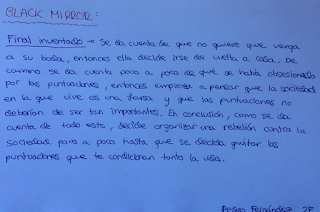 BLACK MIRROR:
Final inventado → Se da cuenta de que no quiere que venga
a su boda, entonces ella decide irse de vuelta a casa. De
camino se da cuenta poco a poco de que se había obsesionado
por las puntuaciones, entonces empieza a pensar que la sociedad
en la que vive es una farsa y que las puntuaciones no
deberían de ser tan importantes. En conclusión, como se da
cuenta de todo esto, decide organizar una rebelión contra la
sociedad poco a poco hasta que se decida quitar las
puntuaciones que te condicionan tanto la vida.
Pedro Fernández 2F